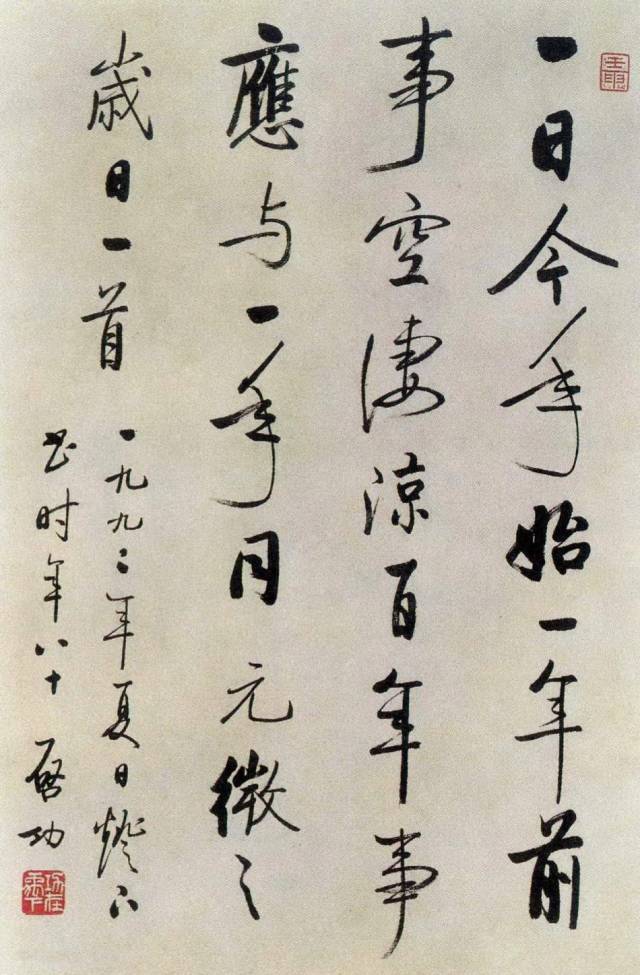 一日今年始一年前
事空凄涼百年事
應与一年同元微之
歳日一首
一九九二年夏日燈下
书时年八十啓功